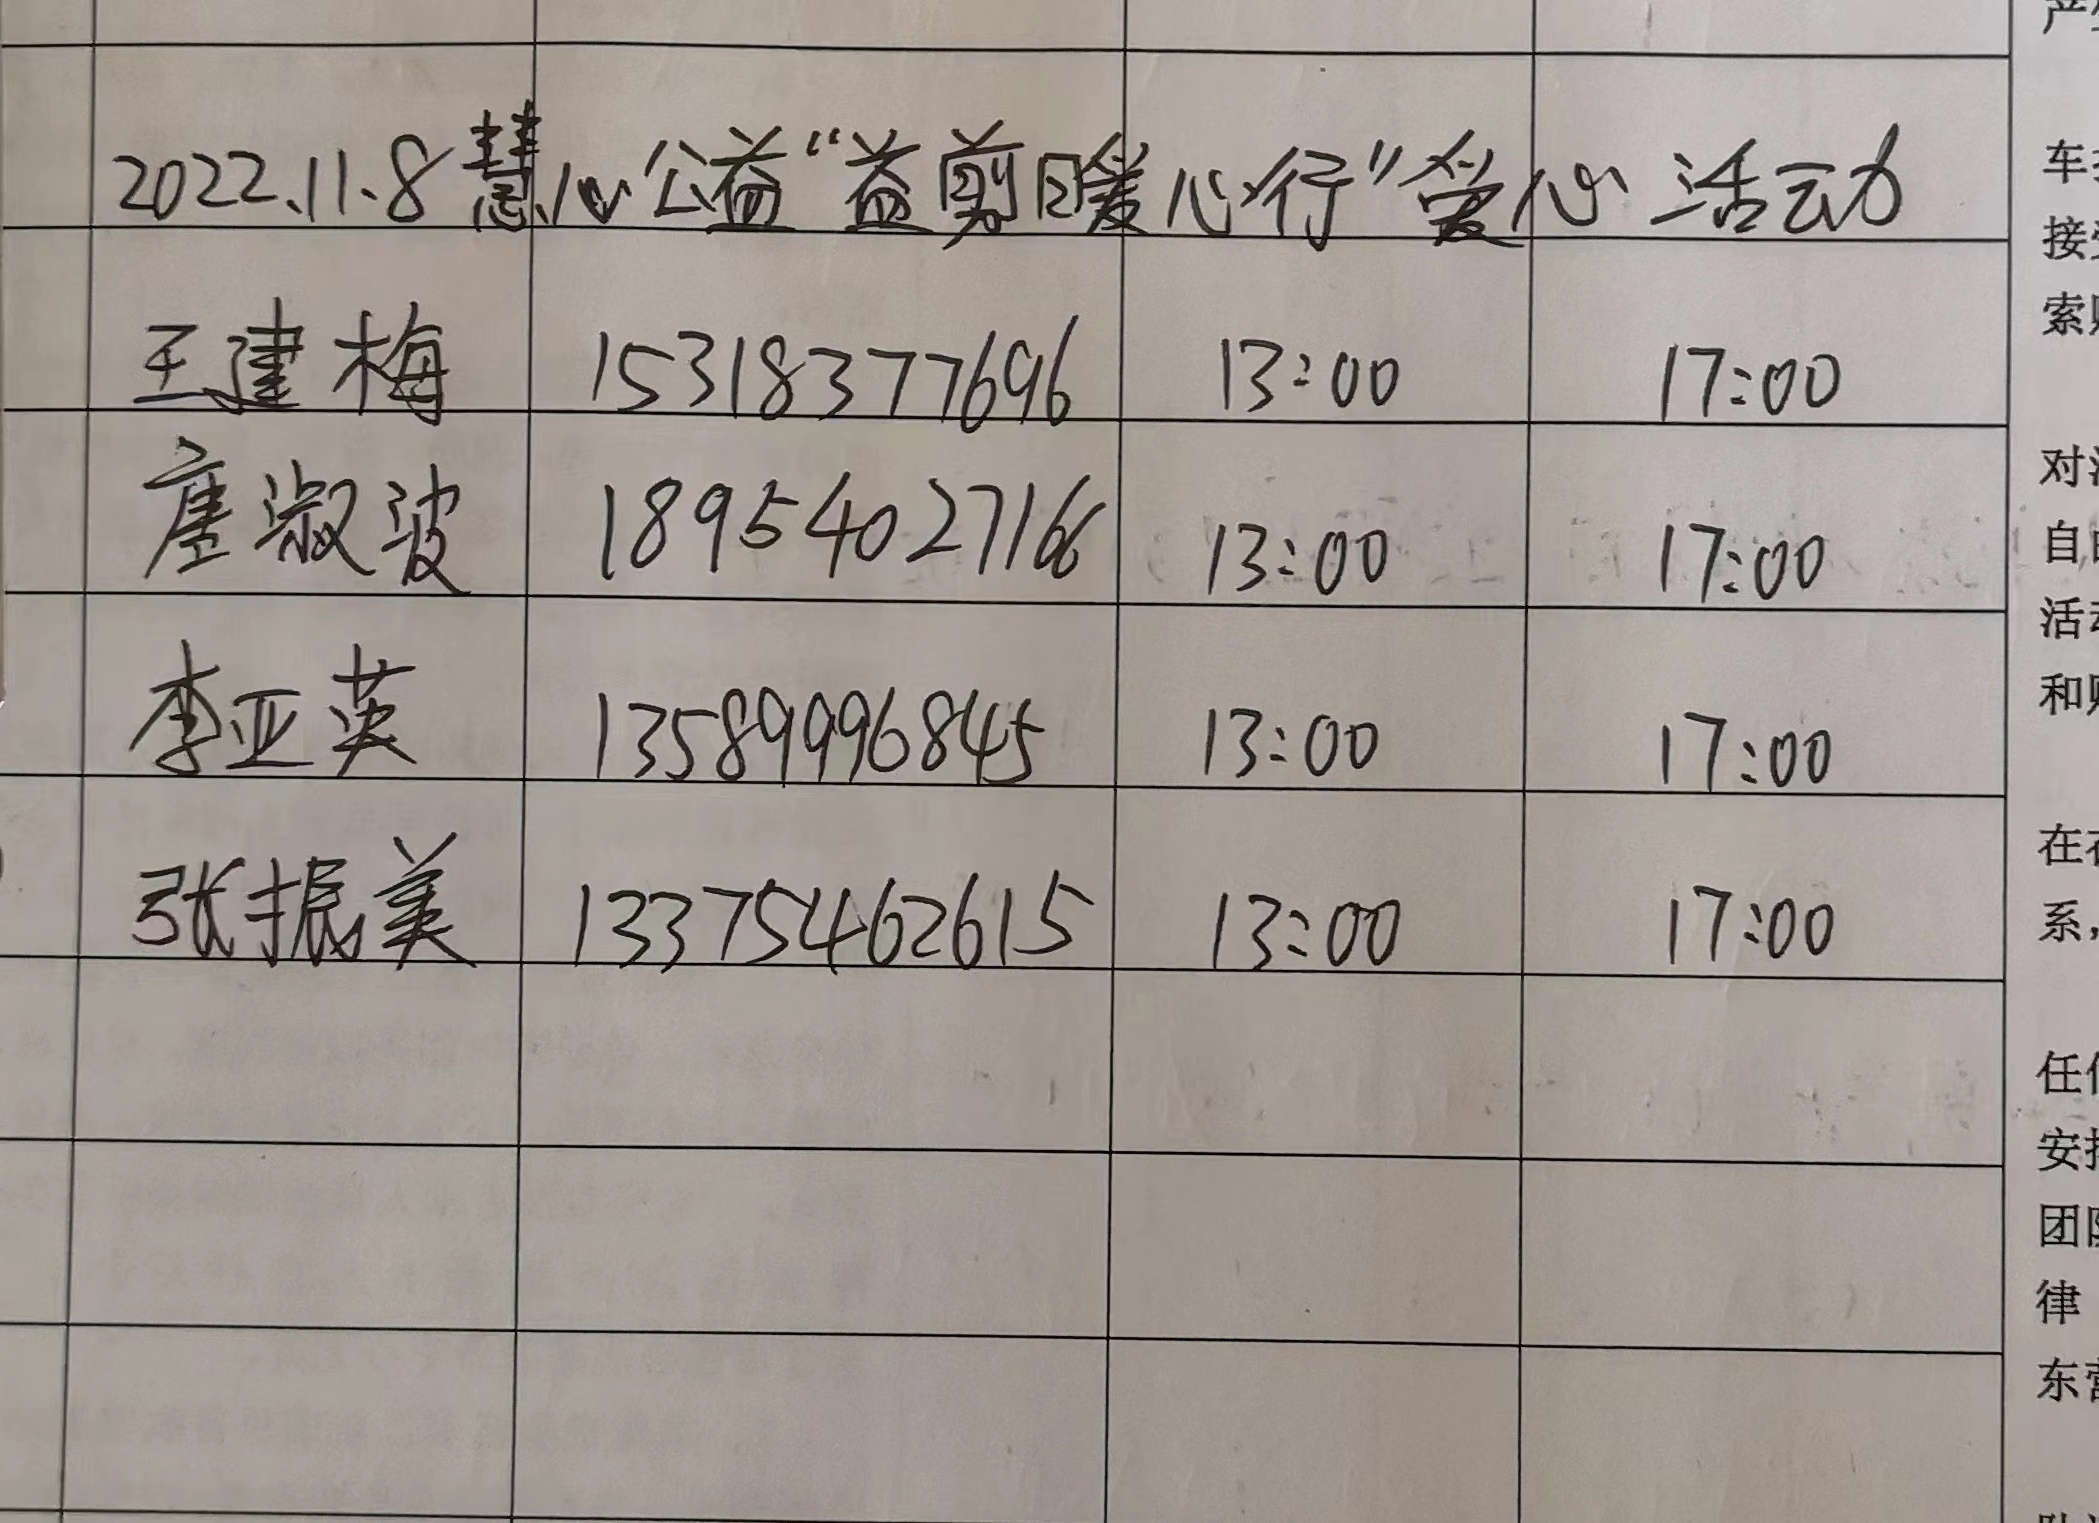 2022.11.8慧心公益“益剪暖心行”爱心活动
王建梅 15318377696 13:00 17:00
唐淑波 18954027166 13:00 17:00
李亚英 13589996845 13:00 17:00
张振美 13375462615 13:00 17:00
车
接
索
对
自
活
和
在
系，
任
安
团
律
东